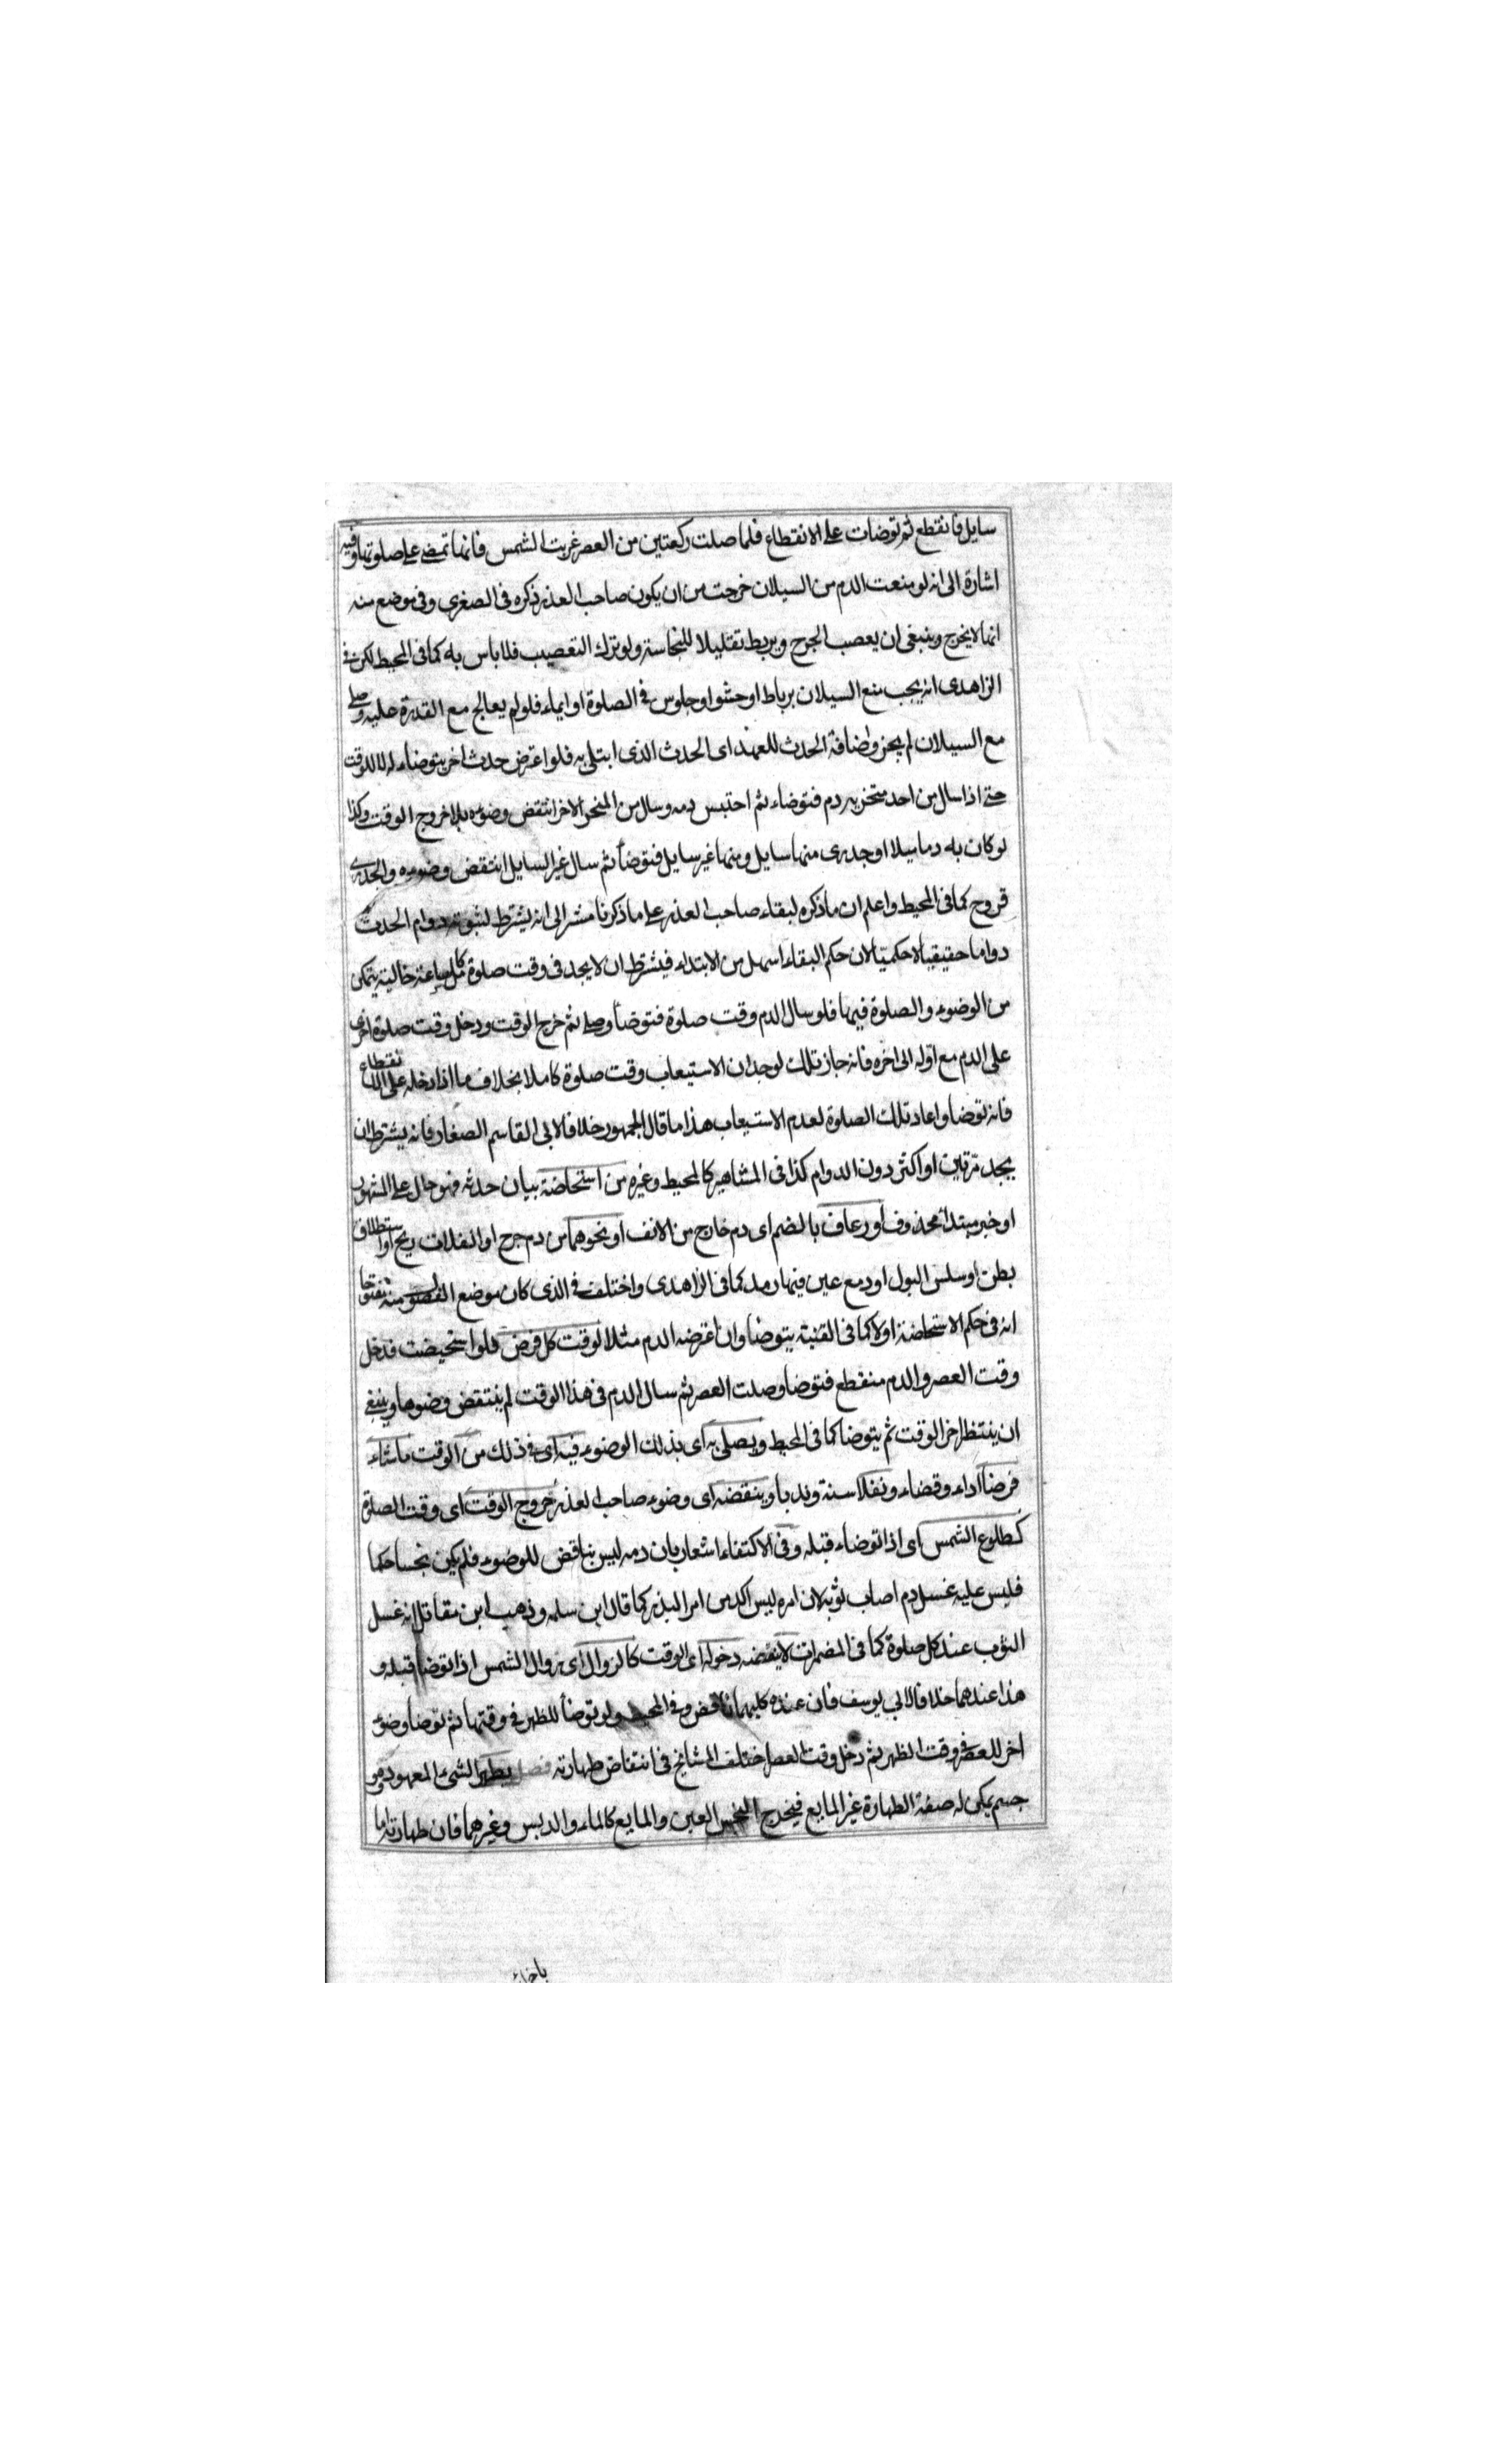 سايل فانقطع ثم توضات على الانقطاع فلما صلت ركعتين من العصر غربت الشمس فانها تمضى على صلوتها وفيه
اشارة الى انه لو منعت الدم من السيلان خرجت من ان يكون صاحب العذر ذكره فى الصغرى وفى موضع منه
انها لا يخرج وينبغى ان يعصب الجرح ويربط تقليلا للنجاسة ولو ترك التعصيب فلا باس به كما فى المحيط لكن فى
الزاهدى انه يجب منع السيلان برباط او حشو او جلوس فى الصلوة او ايماء فلو لم يعالج مع القدرة عليه وصلى
مع السيلان لم يجز واضافة الحدث للعهد اى الحدث الذى ابتلى به فلو اعترض حدث اخر يتوضاء له لا للوقت
حتى اذا سال من احد منخريه دم فتوضاء ثم احتبس دمه وسال من المنخر الاخر انتقض وضوءه بلا خروج الوقت وكذا
لو كان به دماميلا او جدرى منها سايل ومنها غير سايل فتوضأ ثم سال غير السايل انتقض وضوءه والجدرى
قروح كما فى المحيط واعلم ان ما ذكره لبقاء صاحب العذر على ما ذكرنا مشر الى انه يشترط لثبوته دوام الحدث
دواما حقيقيا لا حكميا لان حكم البقاء اسهل من الابتداء فيشترط ان لا يجد فى وقت صلوة كامل ساعة خالية يتمكن
من الوضوء والصلوة فيها فلو سال الدم وقت صلوة فتوضأ وصلى ثم خرج الوقت ودخل وقت صلوة اخرى
على الدم مع اوله الى اخره فانه جاز تلك لوجدان الاستيعاب وقت صلوة كاملا بخلاف ما اذا دخله على الانقطاع
فانه توضا واعاد تلك الصلوة لعدم الاستيعاب هذا ما قال الجمهور خلافا لابى القاسم الصفار فانه يشترط ان
يجد مرتين او اكثر دون الدوام كذا فى المشاهير كالمحيط وغيره من استحاضة بيان حدثه فهو حال على المشهور
او خبر مبتدأ محذوف او رعاف بالضم اى دم خارج من الانف او نحوهما من دم جرح او انفلات ريح او استطلاق
بطن او سلس البول او دمع عين فيها رمد كما فى الزاهدى واختلف فى الذى كان موضع الفصد منه مفتوحا
انه فى حكم الاستحاضة اولا كما فى القنية يتوضا وان اعرضه الدم مثلا لوقت كل فرض فلو استحيضت فدخل
وقت العصر والدم منقطع فتوضا وصلت العصر ثم سال الدم فى هذا الوقت لم ينتقض وضوءها وينبغى
ان ينتظر اخر الوقت ثم يتوضا كما فى المحيط ويصلى به اى بذلك الوضوء فيه اى فى ذلك من الوقت ما شاء
فرضا اداء وقضاء ونفلا سنة وندبا وينقضه اى وضوء صاحب العذر خروج الوقت اى وقت الصلوة
كطلوع الشمس اى اذا توضاء قبله وفى الاكتفاء اشعار بان دمه ليس بناقض للوضوء فلم يكن نجسا حكما
فليس عليه غسل دم اصاب ثوبه لان امره ليس اكد من امر البدن كما قال ابن سلمه وذهب ابن مقاتل انه غسل
الثوب عند كل صلوة كما فى المضمرات لا ينقضه دخوله اى الوقت كالزوال اى زوال الشمس اذا توضا قبله و
هذا عندهما خلافا لابى يوسف فان عنده كليهما ناقض وفى المحيط ولو توضأ للظهر فى وقتها ثم توضا وضوء
اخر للعصر فى وقت الظهر ثم دخل وقت العصر اختلف المشائخ فى انتقاض طهارته فصل يطهر الشىء المعهود وهو
جسم يمكن له صفة الطهارة غير المايع فيخرج النجس العين والمايع كالماء والدبس وغيرهما فان طهارته اما